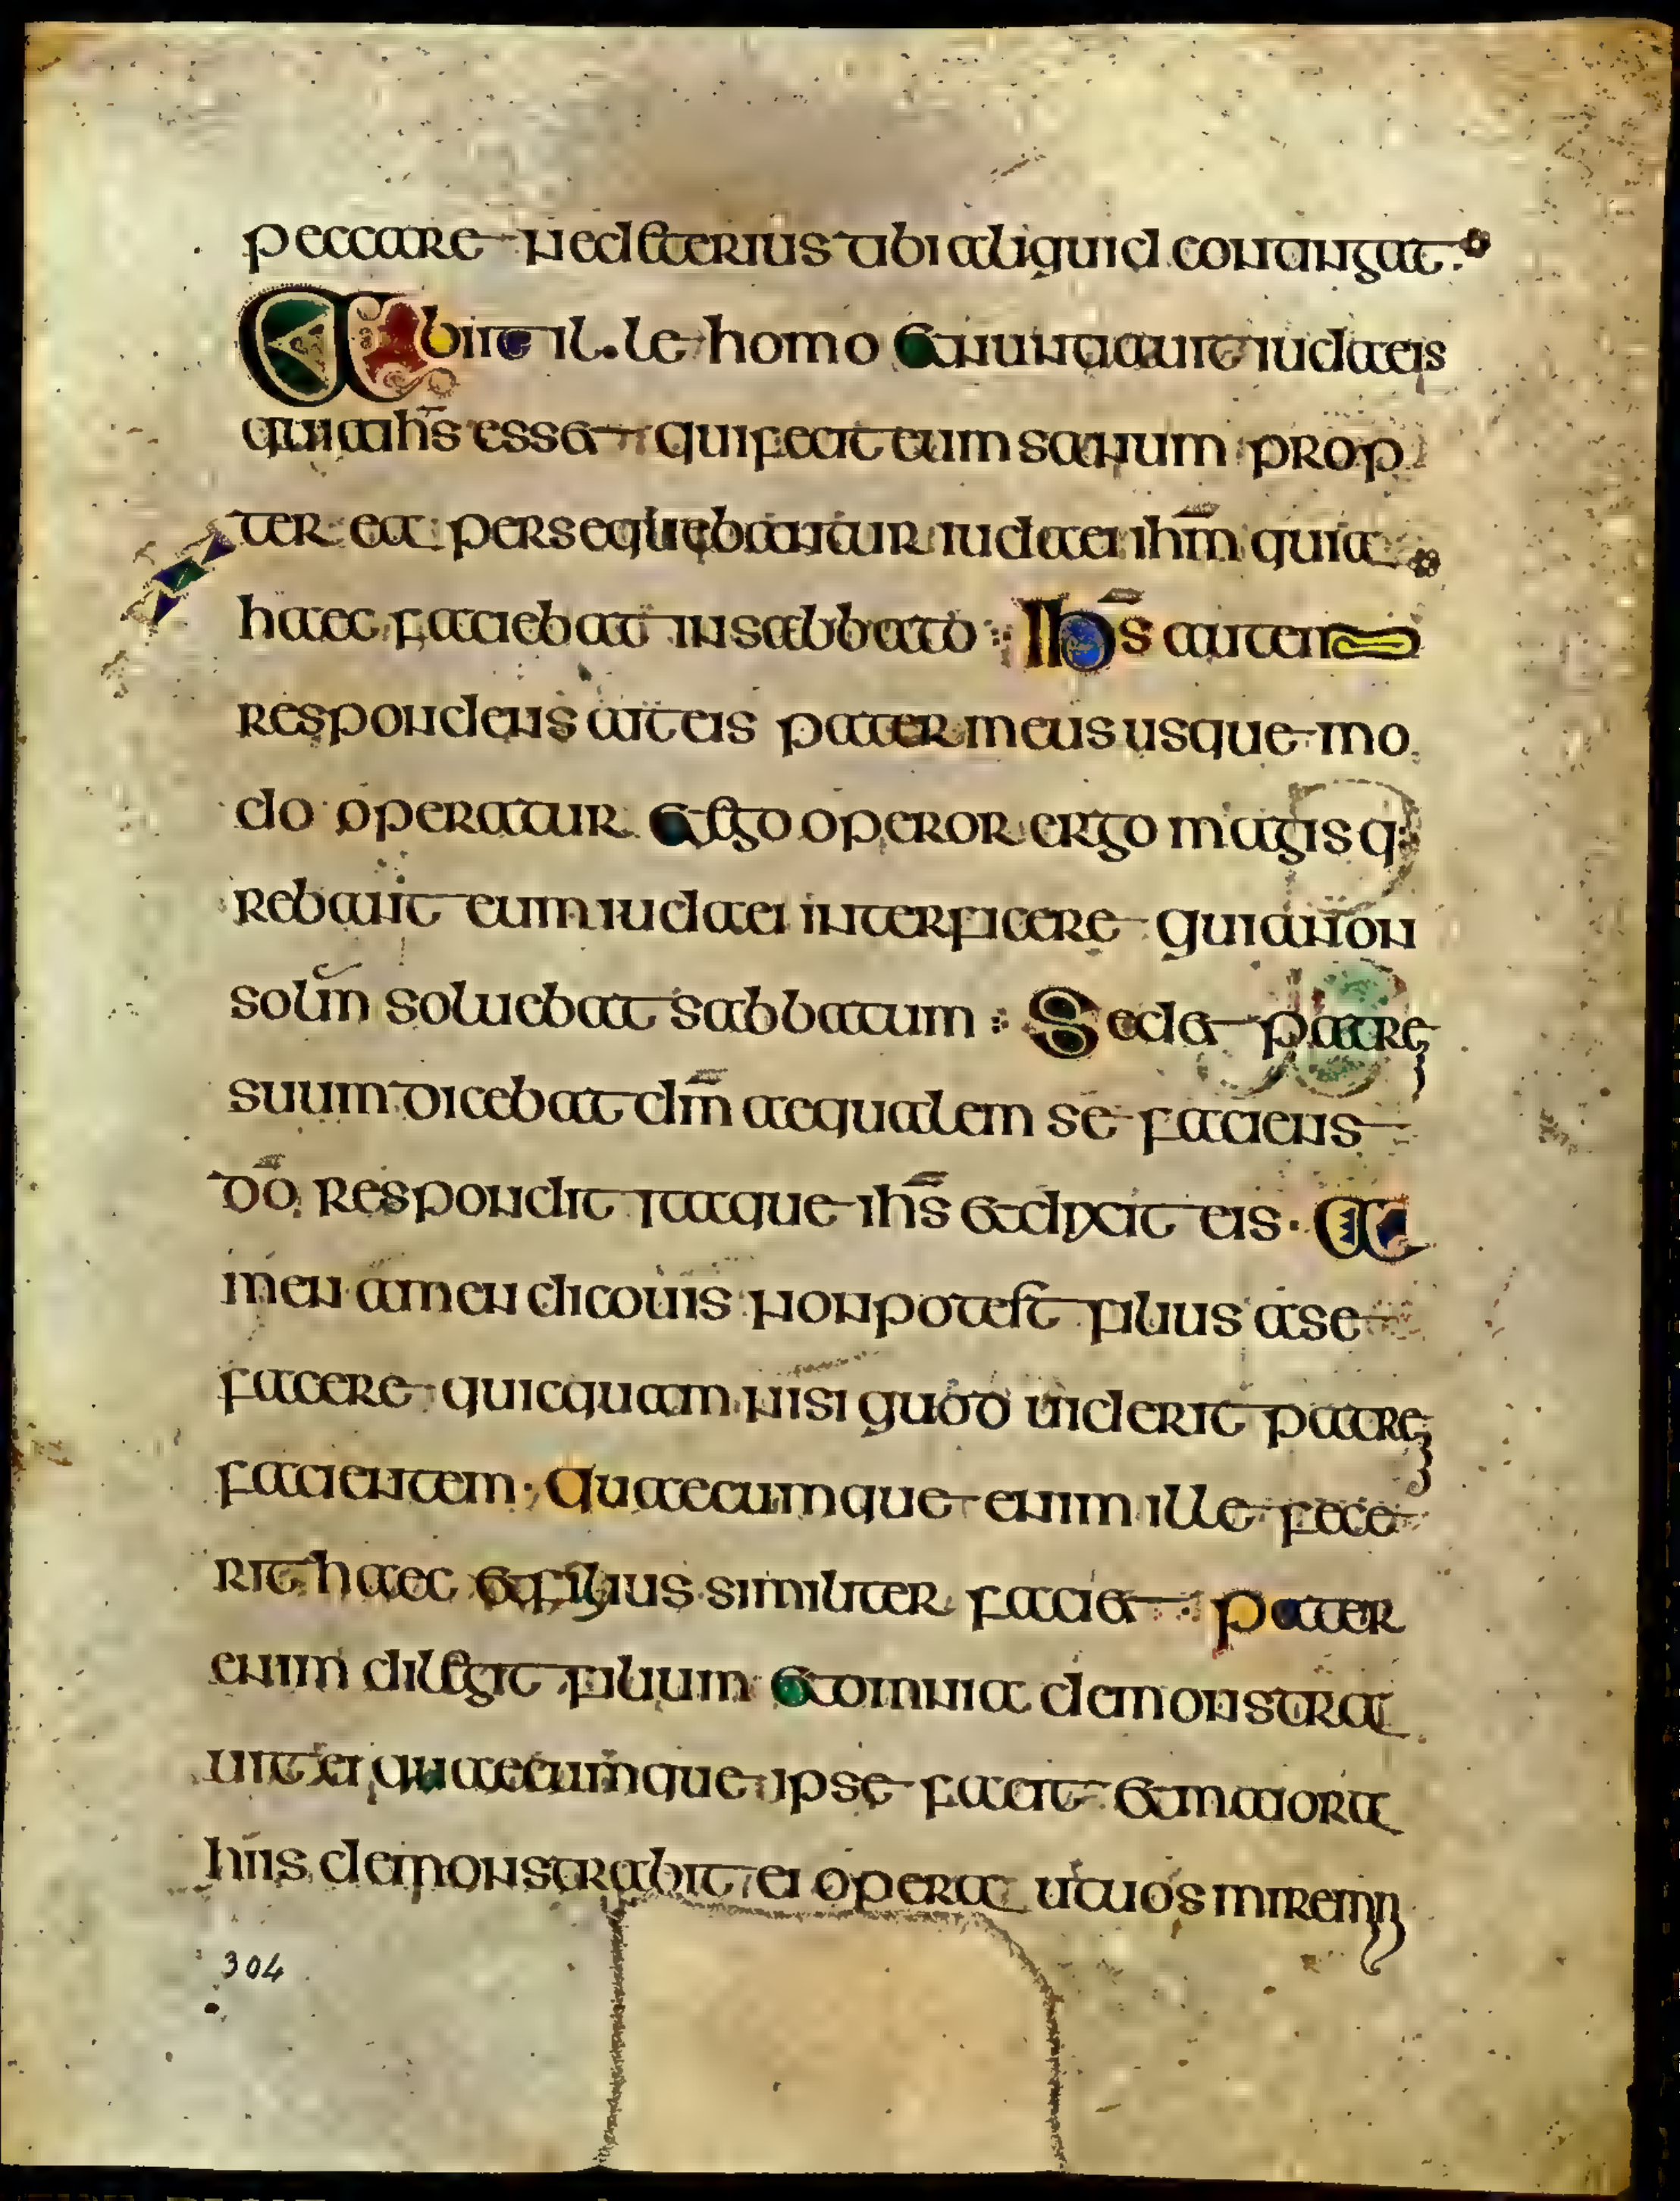 peccare ne deterius tibi aliquid contingat
Abiit ille homo et nuntiauit iudaeis
quia ihs esset qui fecit eum sanum prop
ter ea persequebantur iudaei ihm quia
haec faciebat in sabbato Ihs autem
respondens ait eis pater meus usque mo
do operatur et ego operor ergo magis q:
rebant eum iudaei interficere quia non
solum soluebat sabbatum : Sed et patrem
suum dicebat dm aequalem se faciens
do respondit itaque ihs et dixit eis · A
men amen dico uis non potest filius a se
facere quicquam nisi quod uiderit patrem
facientem · Quaecumque enim ille fece
rit haec et filius similiter faciet · pater
enim diligit filium et omnia demonstra
uit ei quaecumque ipse facit et maiora
hiis demonstrabit ei opera ut uos miremin
304